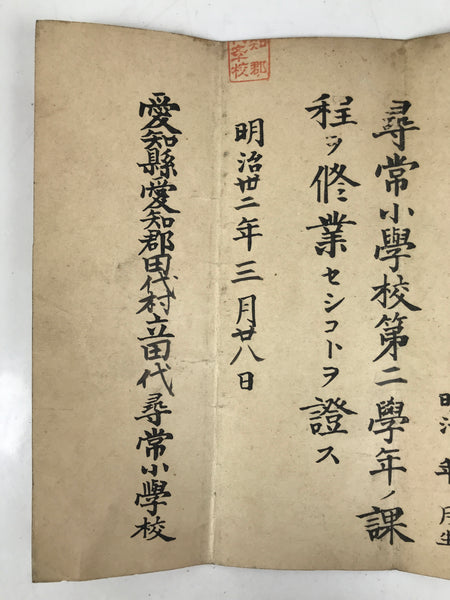 明治 年 月生
尋常小學校第二學年ノ課
程ヲ修業セシコトヲ證ス
明治卅二年三月廿八日
愛知縣愛知郡田代村立田代尋常小學校
知郡
校